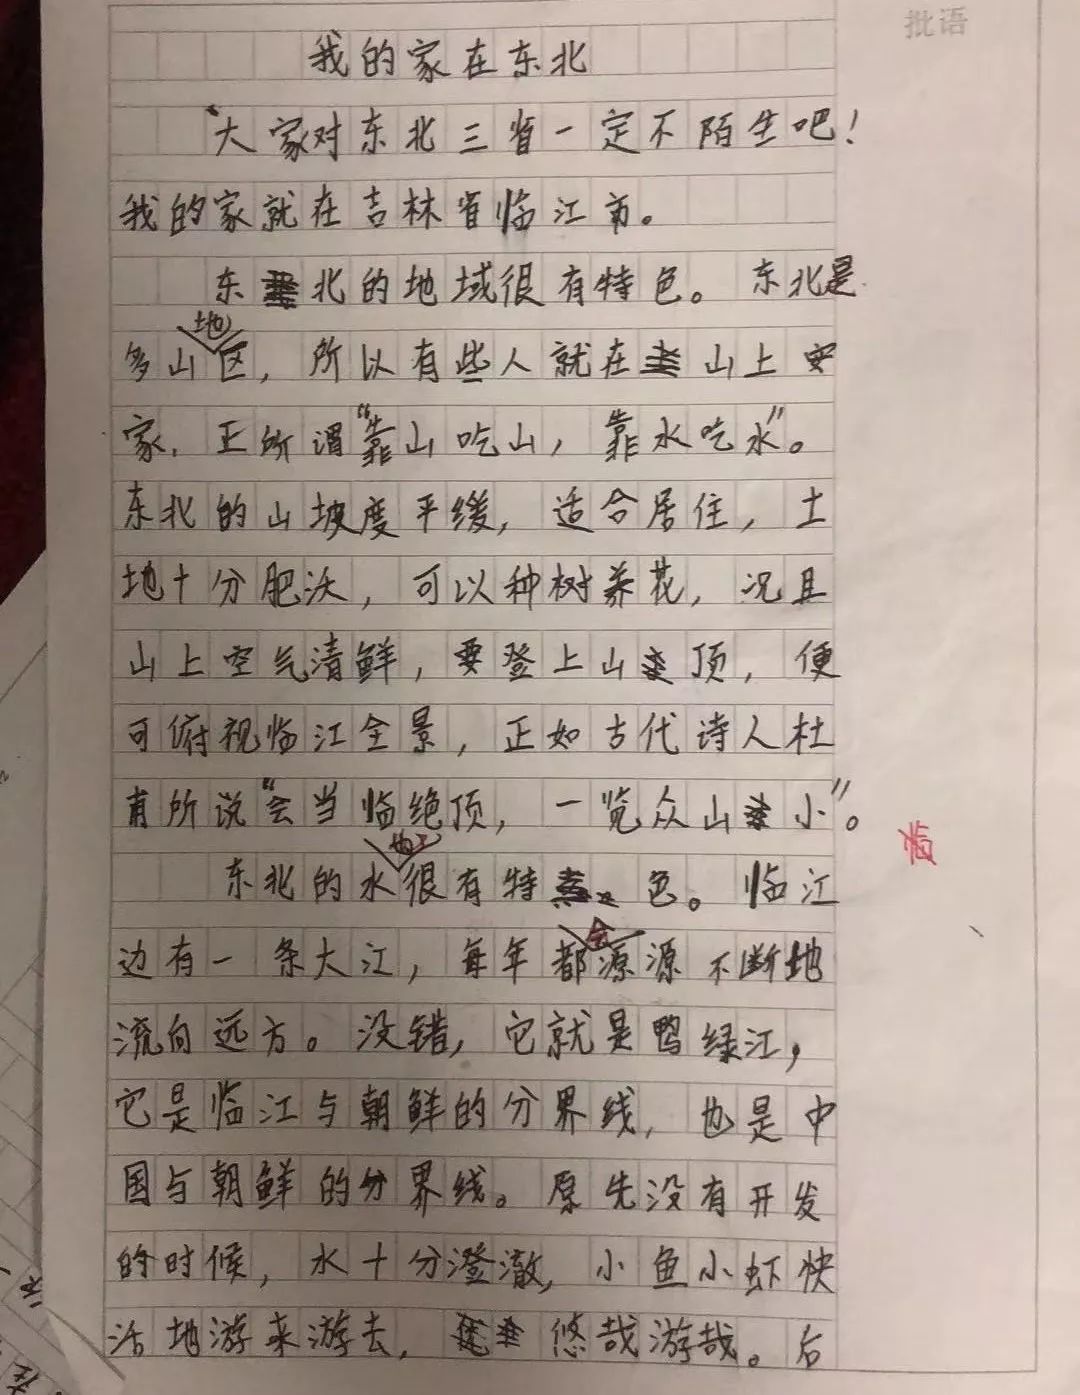 批语
我的家在东北
大家对东北三省一定不陌生吧！
我的家就在吉林省临江市。
东北的地域很有特色。东北是
多山地区，所以有些人就在山上安
家，正所谓“靠山吃山，靠水吃水”。
东北的山坡度平缓，适合居住，土
地十分肥沃，可以种树养花，况且
山上空气清鲜，要登上山顶，便
可俯视临江全景，正如古代诗人杜
甫所说“会当临绝顶，一览众山小”。
东北的水也很有特色。临江
边有一条大江，每年都会源源不断地
流向远方。没错，它就是鸭绿江，
它是临江与朝鲜的分界线，也是中
国与朝鲜的分界线。原先没有开发
的时候，水十分澄澈，小鱼小虾快
活地游来游去，悠哉游哉。后